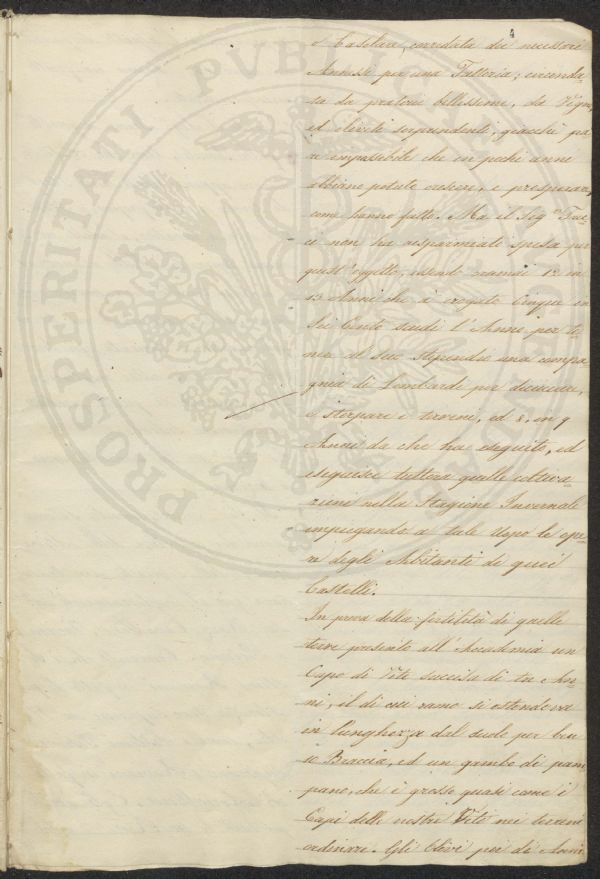 4
e Casolare, corredata dei necessari
Annessi per una Fattoria, circonda-
ta da praterie bellissime, da Vigne,
ed oliveti sorprendenti, giacchè pa-
re impossibile che in pochi anni
abbiano potuto crescere, e prosperare,
come hanno fatto. Ma il Sig.re
ci non ha risparmiato spesa per
quest'oggetto, essendo oramai 12 in
13 Anni che à erogato Cinque in
Sei Cento scudi l'Anno per te-
nere al suo Stipendio una compa-
gnia di Lombardi per dicioccare,
e sterpare i terreni, ed 8, in 9
Anni da che ha eseguito, ed
eseguisce tuttora quelle coltiva-
zioni nella Stagione Invernale
impiegando a tale Uopo le ope-
re degli Abitanti di quei
Castelli.
In prova della fertilità di quelle
terre presento all'Accademia un
Capo di Vite succisa di tre An-
ni, il di cui ramo si estendeva
in lunghezza dal suolo per
Braccia, ed un gambo di pam-
pano, che è grosso quasi come i
Capi delle nostre Viti nei terreni
ordinari. Gli Olivi poi di
PROSPERITATI PUBLICAE